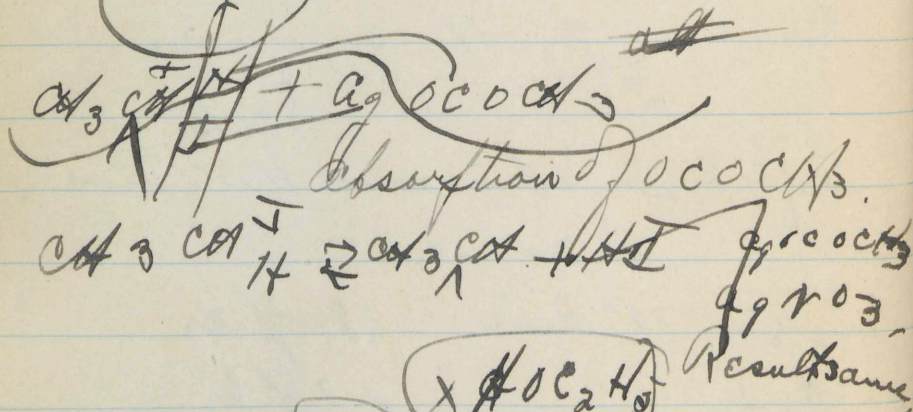 CH3 CH + Ag OCOCH3
Absorption of OCOCH3.
CH3 CH I H ⇄ CH3CH + HI
AgOCOCH3
AgNO3
Result same
X HOC2H5